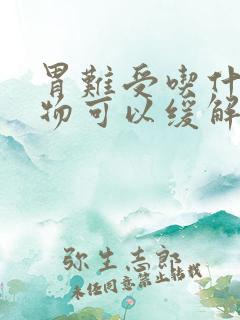 胃難受喫什
物可以缓解
弥生志郎
未经同意禁止转载